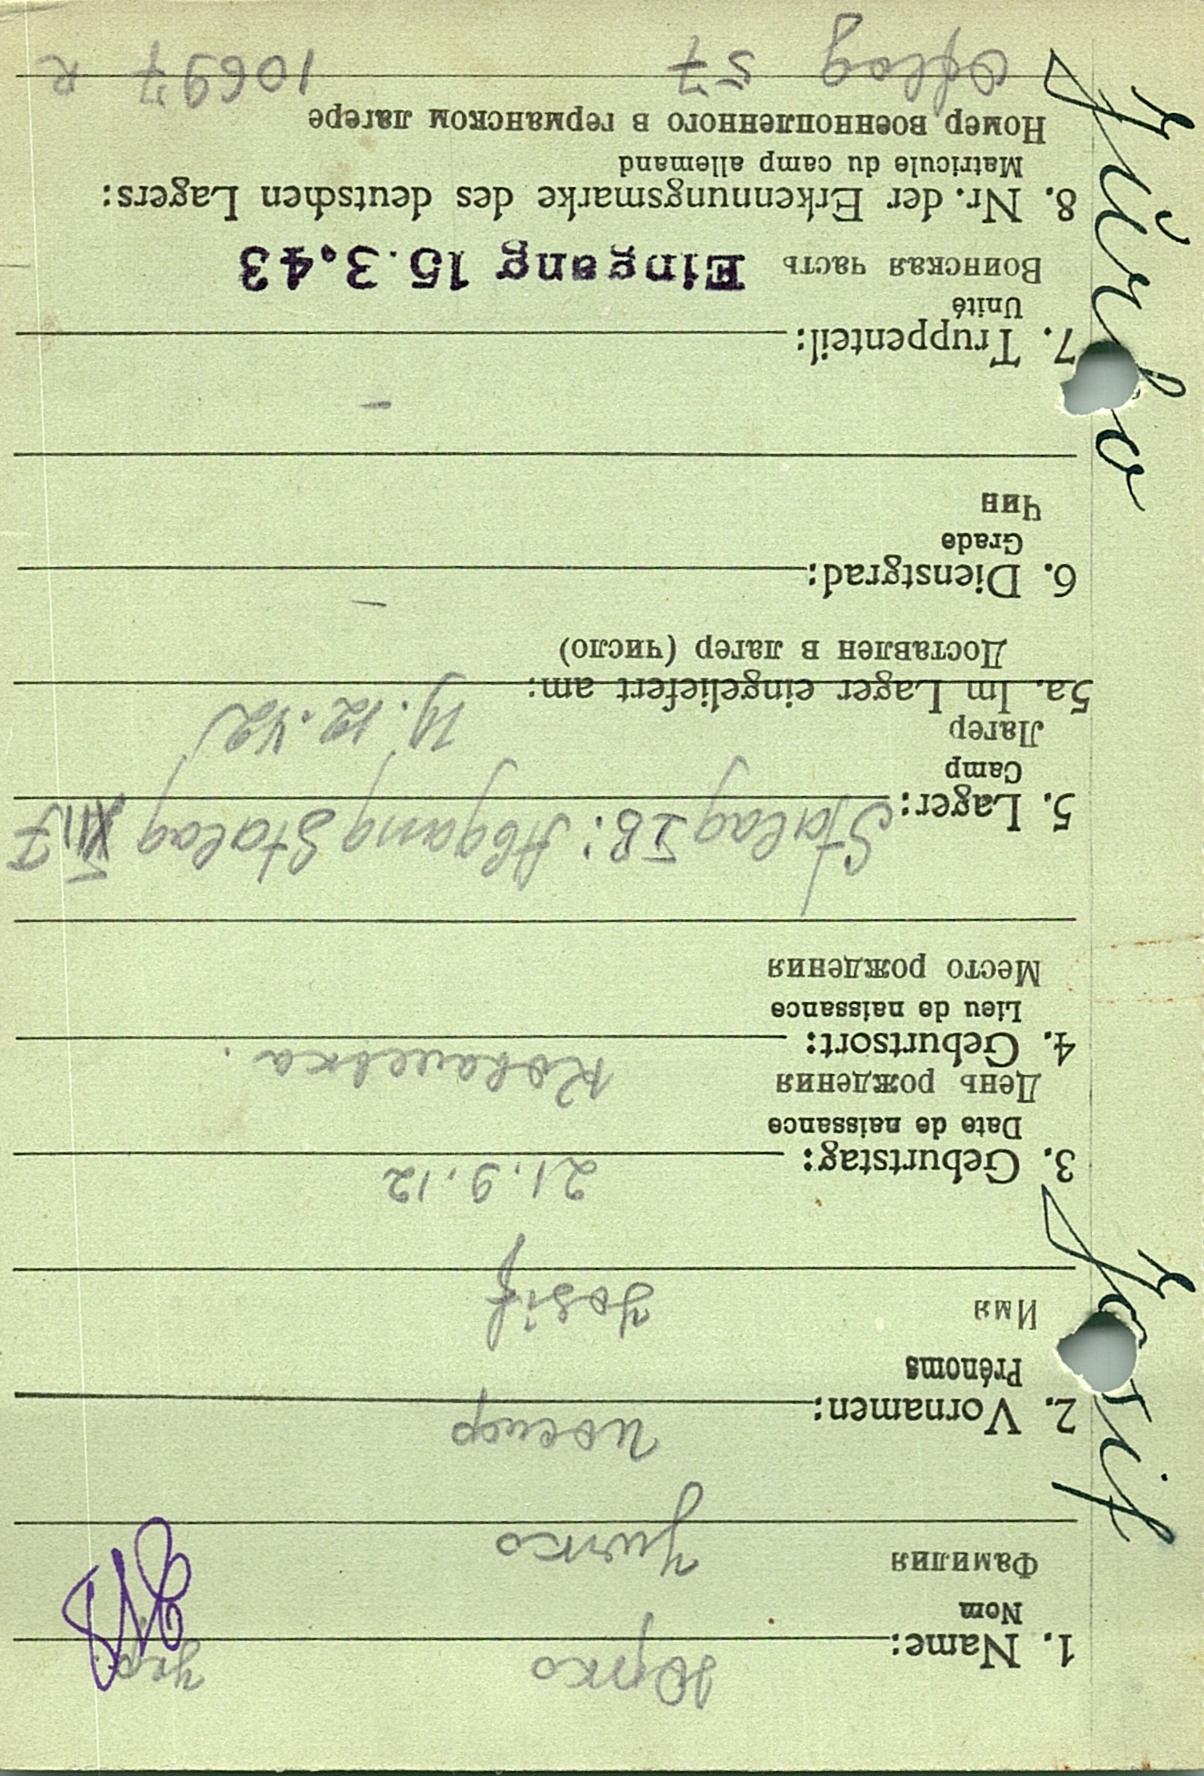 Юрко Укр.
1. Name:
Nom
Фамилия Jurko
2. Vornamen: Иосиф
Prénoms
Имя Josif
3. Geburtstag: 21.9.12
Date de naissance
День рождения
4. Geburtsort:
Lieu de naissance
Место рождения
5. Lager: Stalag IB: Abgang Stalag
Camp
Лагер
5a. Im Lager eingeliefert am:
Доставлен в лагер (число)
6. Dienstgrad: –
Grade
Чин
7. Truppenteil: –
Unité
Воинская часть Eingang 15.3.43
8. Nr. der Erkennungsmarke des deutschen Lagers:
Matricule du camp allemand
Номер военнопленного в германском лагере
Oflag 57 10697 R
Josif
Jurko